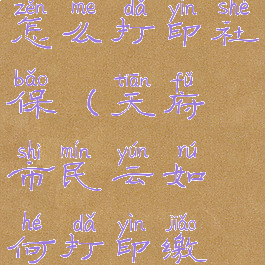 zěn me dǎ yìn shè
怎么打印社
bǎo tiān fǔ
保(天府
shì mín yún rú
市民云如
hé dǎ yìn jiǎo
何打印缴